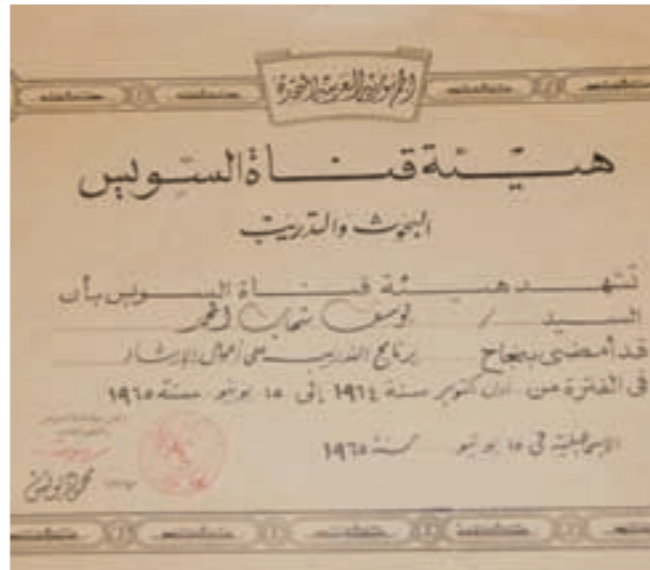 الجمهورية العربية المتحدة
هيئة قناة السويس
البحوث والتدريب
تشهد هيئة قناة السويس بأن
السيد / يوسف شهاب احمد
قد أمضى بنجاح برنامج التدريب على أعمال الإرشاد
فى الفترة من أول أكتوبر سنة ١٩٦٤ إلى ١٥ يونيو سنة ١٩٦٥
الإسماعيلية فى ١٥ يونيو سنة ١٩٦٥
محمود يونس